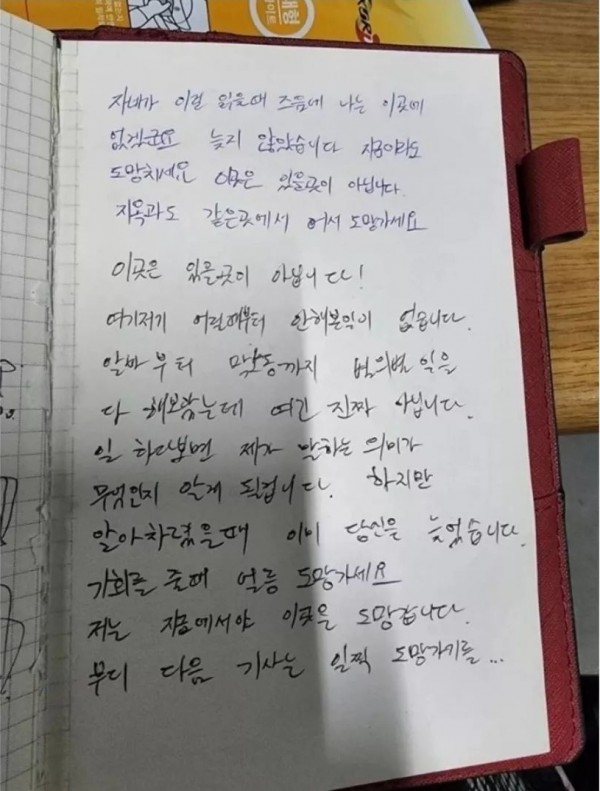 자네가 이걸 읽을때 즈음에 나는 이곳에
없겠군요 늦지 않았습니다 지금이라도
도망치세요 이곳은 있을곳이 아닙니다.
지옥과도 같은곳에서 어서 도망가세요
이곳은 있을곳이 아닙니다!
여기저기 어린때부터 안해본일이 없습니다.
알바부터 막노동까지 별의별 일을
다 해보았는데 여긴 진짜 아닙니다.
일 하다보면 제가 말하는 의미가
무엇인지 알게 될겁니다. 하지만
알아차렸을때 이미 당신은 늦었습니다.
기회를 줄때 얼릉 도망가세요
저는 지금에서야 이곳을 도망갑니다.
부디 다음 기사는 일찍 도망가기를...